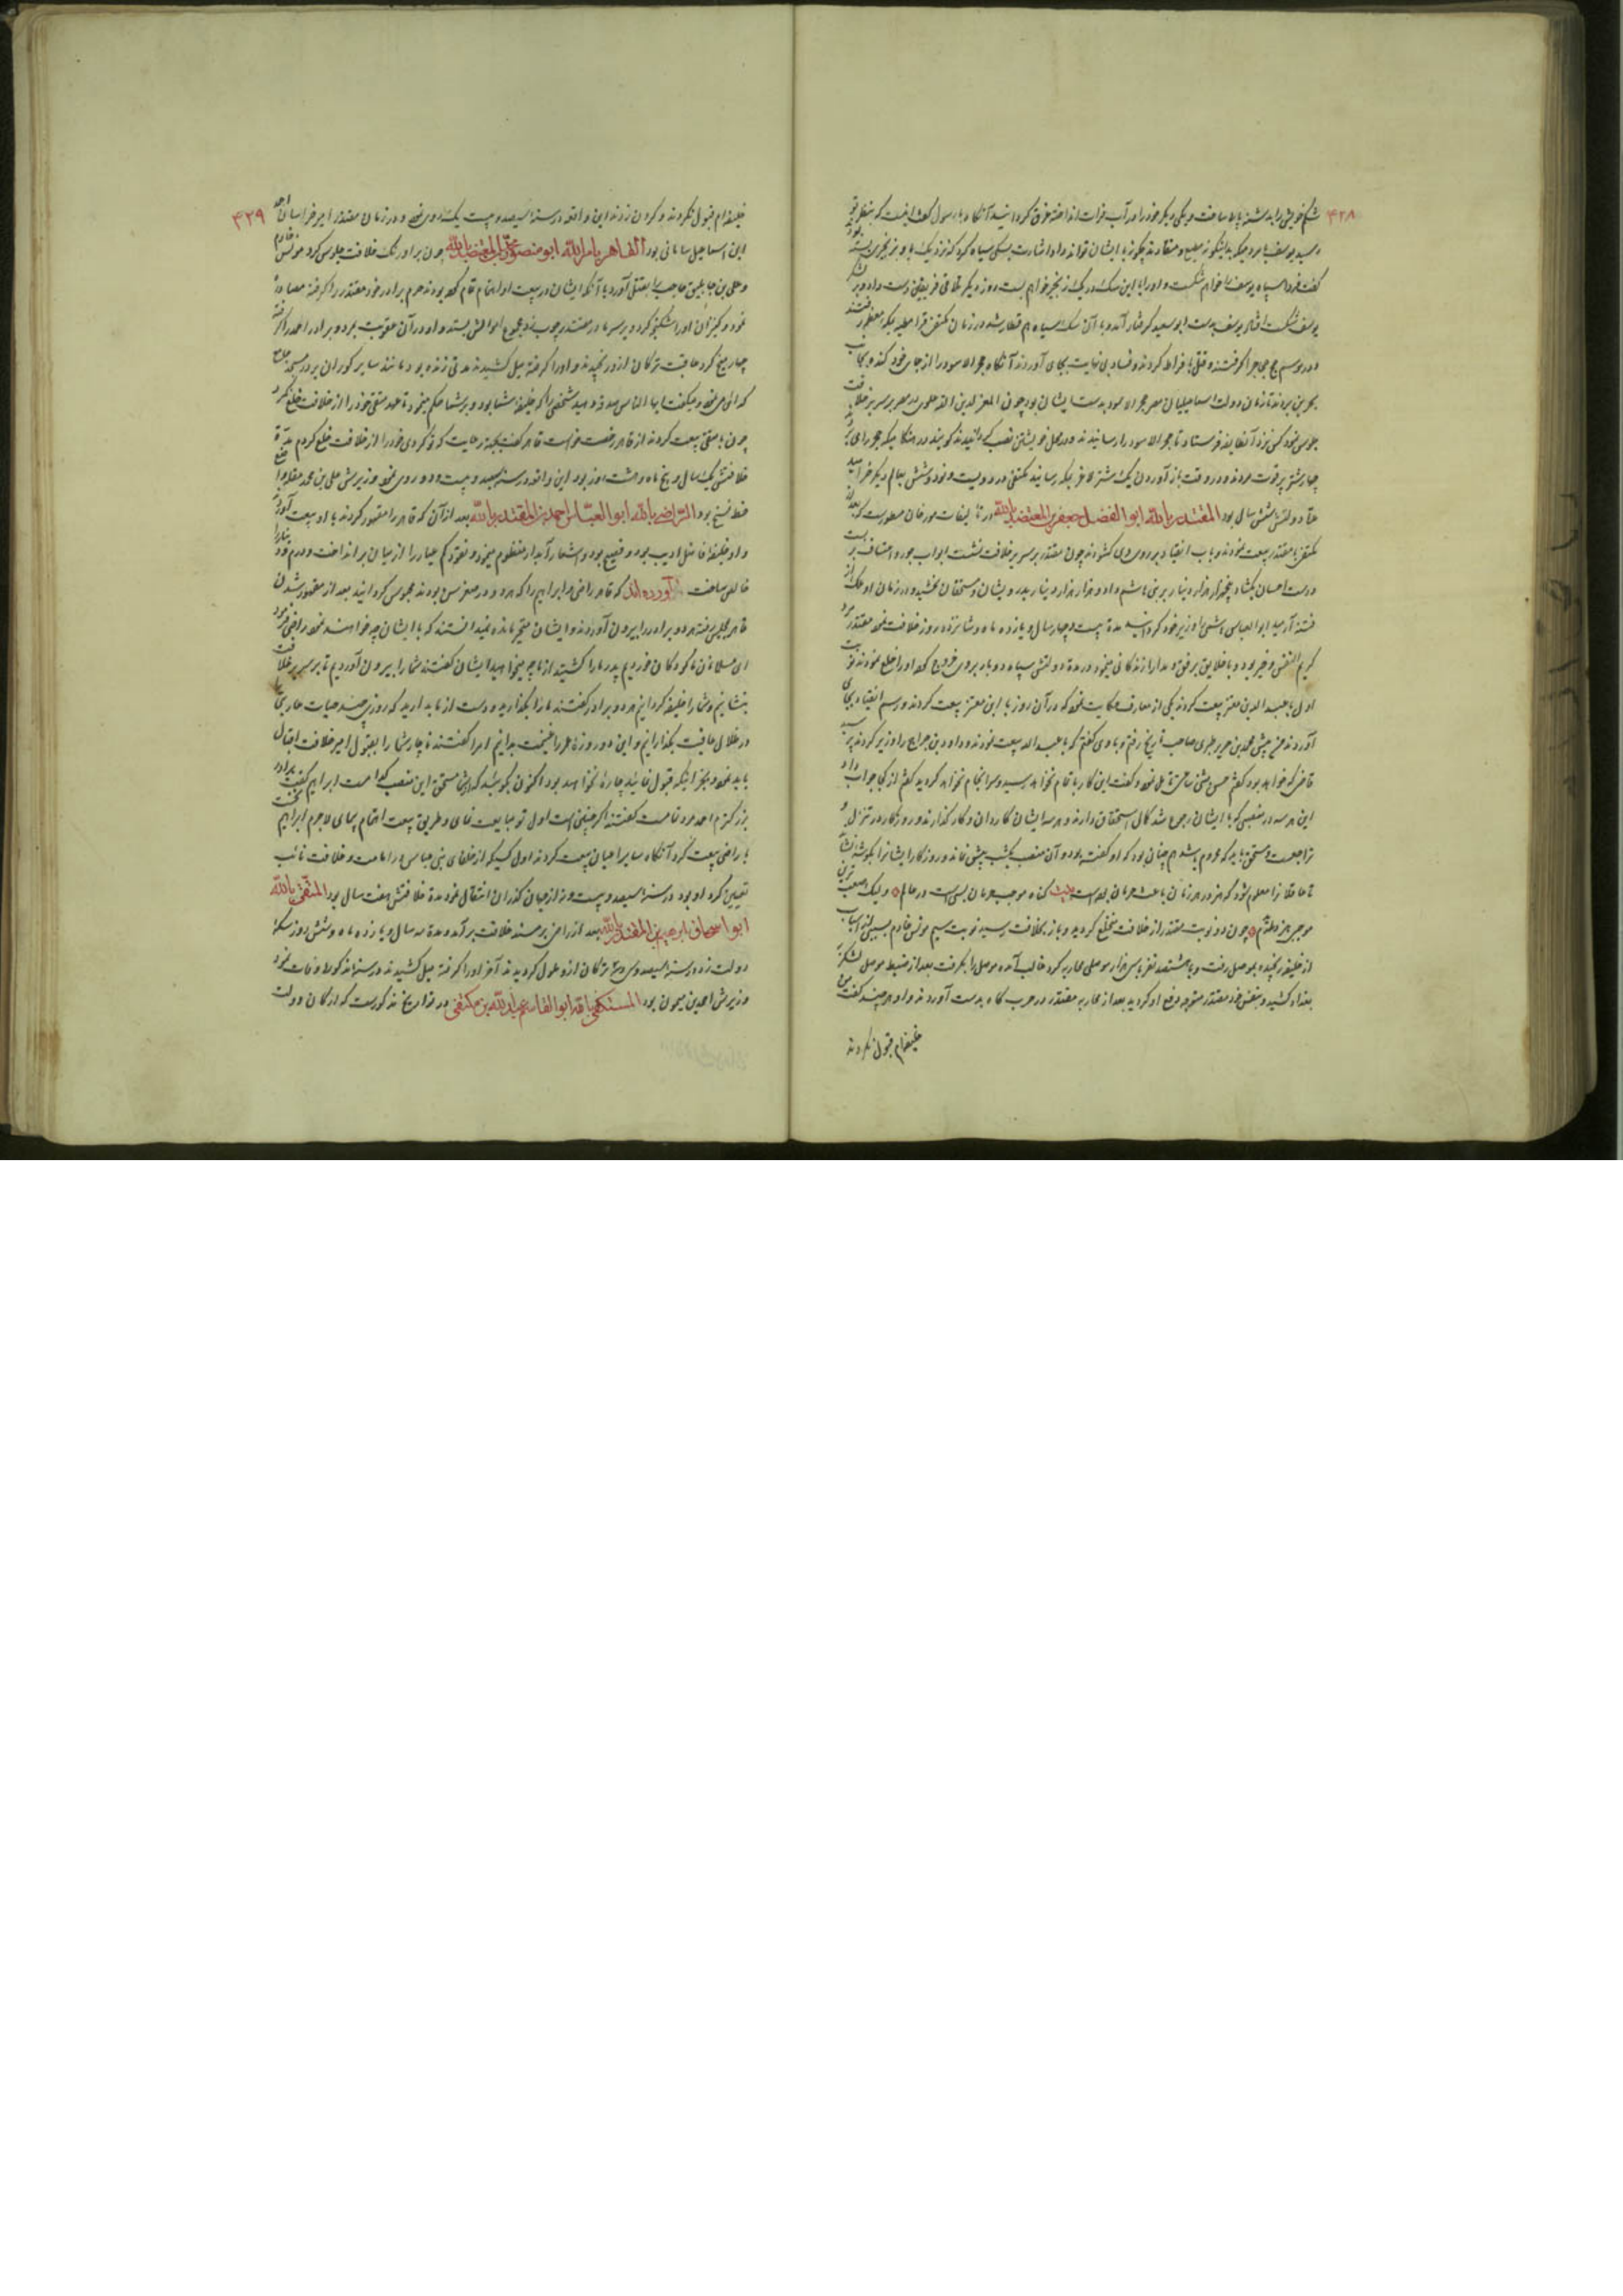 ۴۲۸
شکم خویش را بدشنه پاره ساخت و یکی دیگر خود را در آب فرات انداخته غرق کردانید آنکاه با رسول کفت
کفت فردا سپاه یوسف را خواهم شکست و او را با این سک در یک زنجیر خواهم بست روز دیگر تلاقی فریقین دست داد و بر لشکر
یوسف شکست افتاد یوسف بدست ابو سعید کرفتار آمد و با آن سک سیاه هم قطار شد و در زمان مکتفی قرامطه بمکه معظمه رفتند
و در موسم حج حاجرا کرفتند و قتل با فراط کردند و فساد بی نهایت بجای آوردند آنکاه حجر الاسود را از جای خود کنده بجانب
بحرین بردند تا زمان دولت اسماعیلیان مصر حجر الاسود بدست ایشان بود چون المعز لدین الله علوی در مصر بر سریر خلافت
جلوس نمود کس نزد آنطایفه فرستاد تا حجر الاسود را رسانیدند و در محل خویشتن نصب کردانیدند کویند در هنکامیکه حجر را می بردند
چهار شتر پر قوت مردند و در وقت باز آوردن یک شتر لاغر بمکه رسانید مکتفی در دویست و نود و شش بعالم دیگر خرامید
مدت دولتش شش سال بود المقتدر بالله ابو الفضل جعفر بن المعتضد بالله در تالیفات مورخان مسطورست که بعد از
مکتفی با مقتدر بیعت نمودند و باب انقیاد بر روی وی کشودند چون مقتدر بر سریر خلافت نشست ابواب جور و اعتساف بر بست
و دست احسان بکشاد پنجهزار هزار دینار بر بنی هاشم داد و هزار هزار دینار بدرویشان و مستحقان بخشید و در زمان او ملک از
فتنه آرمید ابو العباس را وزیر خود کردانید مدة بیست و چهار سال و یازده ماه و شانزده روز خلافت نمود مقتدر مرد
کریم النفس و خیر بود و با خلایق برفق و مدارا زندکانی مینمود و در مدة دولتش سپاه دو بار بر وی خروج کرده او را خلع نمودند نوبت
اول با عبید الله بن معتز بیعت کردند یکی از معارف حکایت نمود که در آن روز با ابن معتز بیعت کردند و رسم انقیاد بجای
آوردند من پیش محمد بن جریر طبری صاحب تاریخ رفتم و با وی کفتم که با عبد الله بیعت نمودند و داود بن جراح را وزیر کردند پرسید
قاضی که خواهد بود کفتم حسن مثنی ساعتی تامل نمود و کفت این کار باتمام نخواهد رسید و سرانجام نخواهد کردید کفتم از کجا جواب داد
این هر سه در منصبی که با ایشان رجوع شد کمال استحقاق دارند و هر سه ایشان کاردان و کار کذارند و روزکار در تنزل و
تراجعست و مستحق باید که محروم باشد هم چنان بود که او کفته بود و آن منصب یکشب بیش نماند و روزکار ایشانرا بکوشه نشاند
تا عاقلانرا معلوم شود که هنر در هر زمان باعث حرمان بوده است بیت کناه موجب حرمان بسیست در عالم و لیک صعب ترین
موجبی هنر دانم چون دو نوبت مقتدر از خلافت منخلع کردید و باز بخلافت رسید نوبت سیم مونس خادم بسببی از اسباب
از خلیفه رنجیده بموصل رفت و با هشتصد نفر با سی هزار موصلی محاربه کرد غالب آمده موصل را بکرفت بعد از ضبط موصل لشکر
بغداد کشید و بنفس خود مقتدر متوجه دفع او کردید بعد از محاربه مقتدر در حرب کاه بدست آوردند و او هر چند کفت من
خلیفه ام قبول نکردند
۴۲۹
خلیفه ام قبول نکردند و کردن زدند این واقعه در سنة سیصد و بیست یک روی نمود و در زمان مقتدر امیر خراسان احمد
ابن اسماعیل سامانی بود القاهر بامر الله ابو منصور محمد بن المعتضد بالله چون برادر بتخت خلافت جلوس کرد مونس خادم
و علی بن حاجب را بقتل آورد با آنکه ایشان در بیعت او اهتمام تمام کرده بودند حرم برادر خود مقتدر را کرفته مصادره
نمود و کنیزان او را شکنجه کرد و بر سر مادر مقتدر چوب زد و مجموع اموالش بستد و او در آن عقوبت بمرد و برادر احمد را کرفته
چهار میخ کرد عاقبت ترکان از او رنجیدند و او را کرفته میل کشیدند مدتی زنده بود و مانند سایر کوران بر در مسجد جامع
کدائی می نمود و میکفت ایها الناس صدقه دهید شخصی را که خلیفه شما بود و بر شما حکم مینمود تا عهد متقی خود را از خلافت خلع نکرد
چون با متقی بیعت کردند از قاهر رخصت خواست قاهر کفت بجهة رعایت کردی خود را از خلافت خلع کردم مدة
خلافتش یکسال و پنج ماه و هشت روز بود این واقعه در سنة سیصد و بیست و دو روی نمود وزیرش علی بن محمد مقله واضع
خط نسخ بود الراضی بالله ابو العباس احمد بن المقتدر بالله بعد از آن که قاهر را مقهور کردند با او بیعت آوردند
و او خلیفة فاضل ادیب بود و فصیح بود و اشعار آبدار منظوم مینمود و نقود کم عیار را از میان بر انداخت و درم و دینار را
خالص ساخت آورده اند که قاهر راضی و ابراهیم را که هر دو در صغر سن بودند محبوس کردانید بعد از مقهور شدن
قاهر بمجلس رفته هر دو برادر را بیرون آوردند و ایشان متحیر مانده نمیدانستند که با ایشان چه خواهند نمود راضی فرمود
ای مسلمانان ما کودکان خوردیم پدر ما را کشتید از ما چه میخواهید ایشان کفتند شما را بیرون آوردیم تا بر سریر خلافت
بنشانیم و شما را خلیفه کردانیم هر دو برادر کفتند ما را بکذارید و دست از ما بدارید که روزی چند حیات عاریتی
در خلال عافیت بکذرانیم و این دو روزه عمر را غنیمت بدانیم امرا کفتند ناچار شما را بقبول امیر خلافت اقبال
باید نمود و بجز اینکه قبول نمائید چارة نخواهد بود اکنون بکوئید که ازشما مستحق این منصب کدامست ابراهیم کفت برادر
بزرکترم احمد مرد تمامست کفتند اکر چنین است اول تو مبایعت نمای و طریق بیعت اهتمام پیمای لاجرم ابراهیم نخست
با راضی بیعت کرد آنکاه سایر اعیان بیعت کردند اول کسیکه از خلفای بنی عباس در امامت و خلافت نائب
تعیین کرد او بود در سنة سیصد و بیست و نه از جهان کذران انتقال نمود مدة خلافتش هفت سال بود المتقی بالله
ابو اسحاق ابراهیم بن المقتدر بالله بعد از راضی بر مسند خلافت بر آمد و مدة سه سال و یازده ماه و شش روز سکة
دولت زد در سنة سیصد و سی و سه ترکان از او ملول کردیدند آخر او را کرفته میل کشیدند و در سنة مذکوره وفات نمود
وزیرش احمد بن میمون بود المستکفی بالله ابو القاسم عبد الله بن مکتفی در تواریخ مذکورست که ارکان دولت